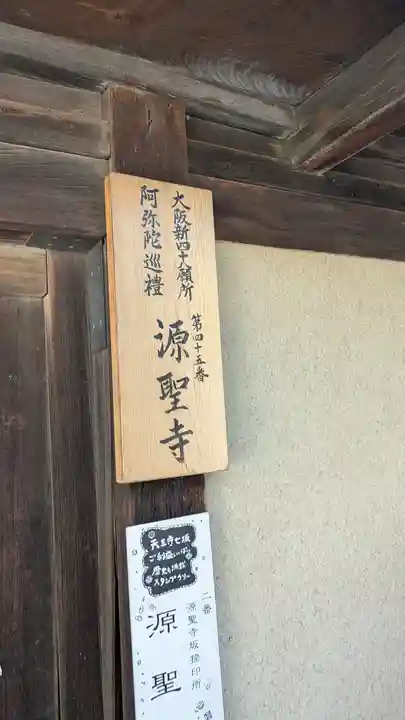 大阪新四十八願所
阿弥陀巡禮
第四十五番
源聖寺
天王寺七坂
ご利益いっぱい
歴史を訪ねる
スタンプラリー
二番
源聖寺坂捺印所
源聖